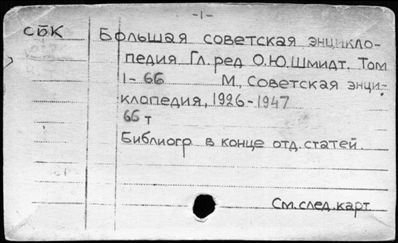 -1-
СБК Большая советская энцикло-
педия Гл. ред О.Ю.Шмидт. Том
1-66 М, Советская энци-
клопедия, 1926-1947
66 т
Библиогр в конце отд. статей.
См. след. карт